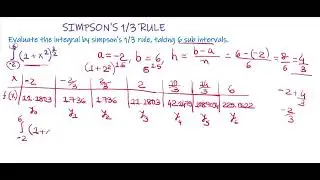 SIMPSON'S 1/3 RULE
Evaluate the integral by simpson's 1/3 rule, taking 6 sub intervals.
6 ∫ -2 (1+x²)^(3/2) a=-2, b=6, h = (b-a)/n = (6-(-2))/6 = 8/6 = 4/3
x -2 -2/3 2/3 2 14/3 6
f(x) 11.1803 1.736 1.736 11.1803
y₀ y₁ y₂ y₃ y₄ y₅ y₆
-2+4/3
-2/3
6 ∫ -2 (1+